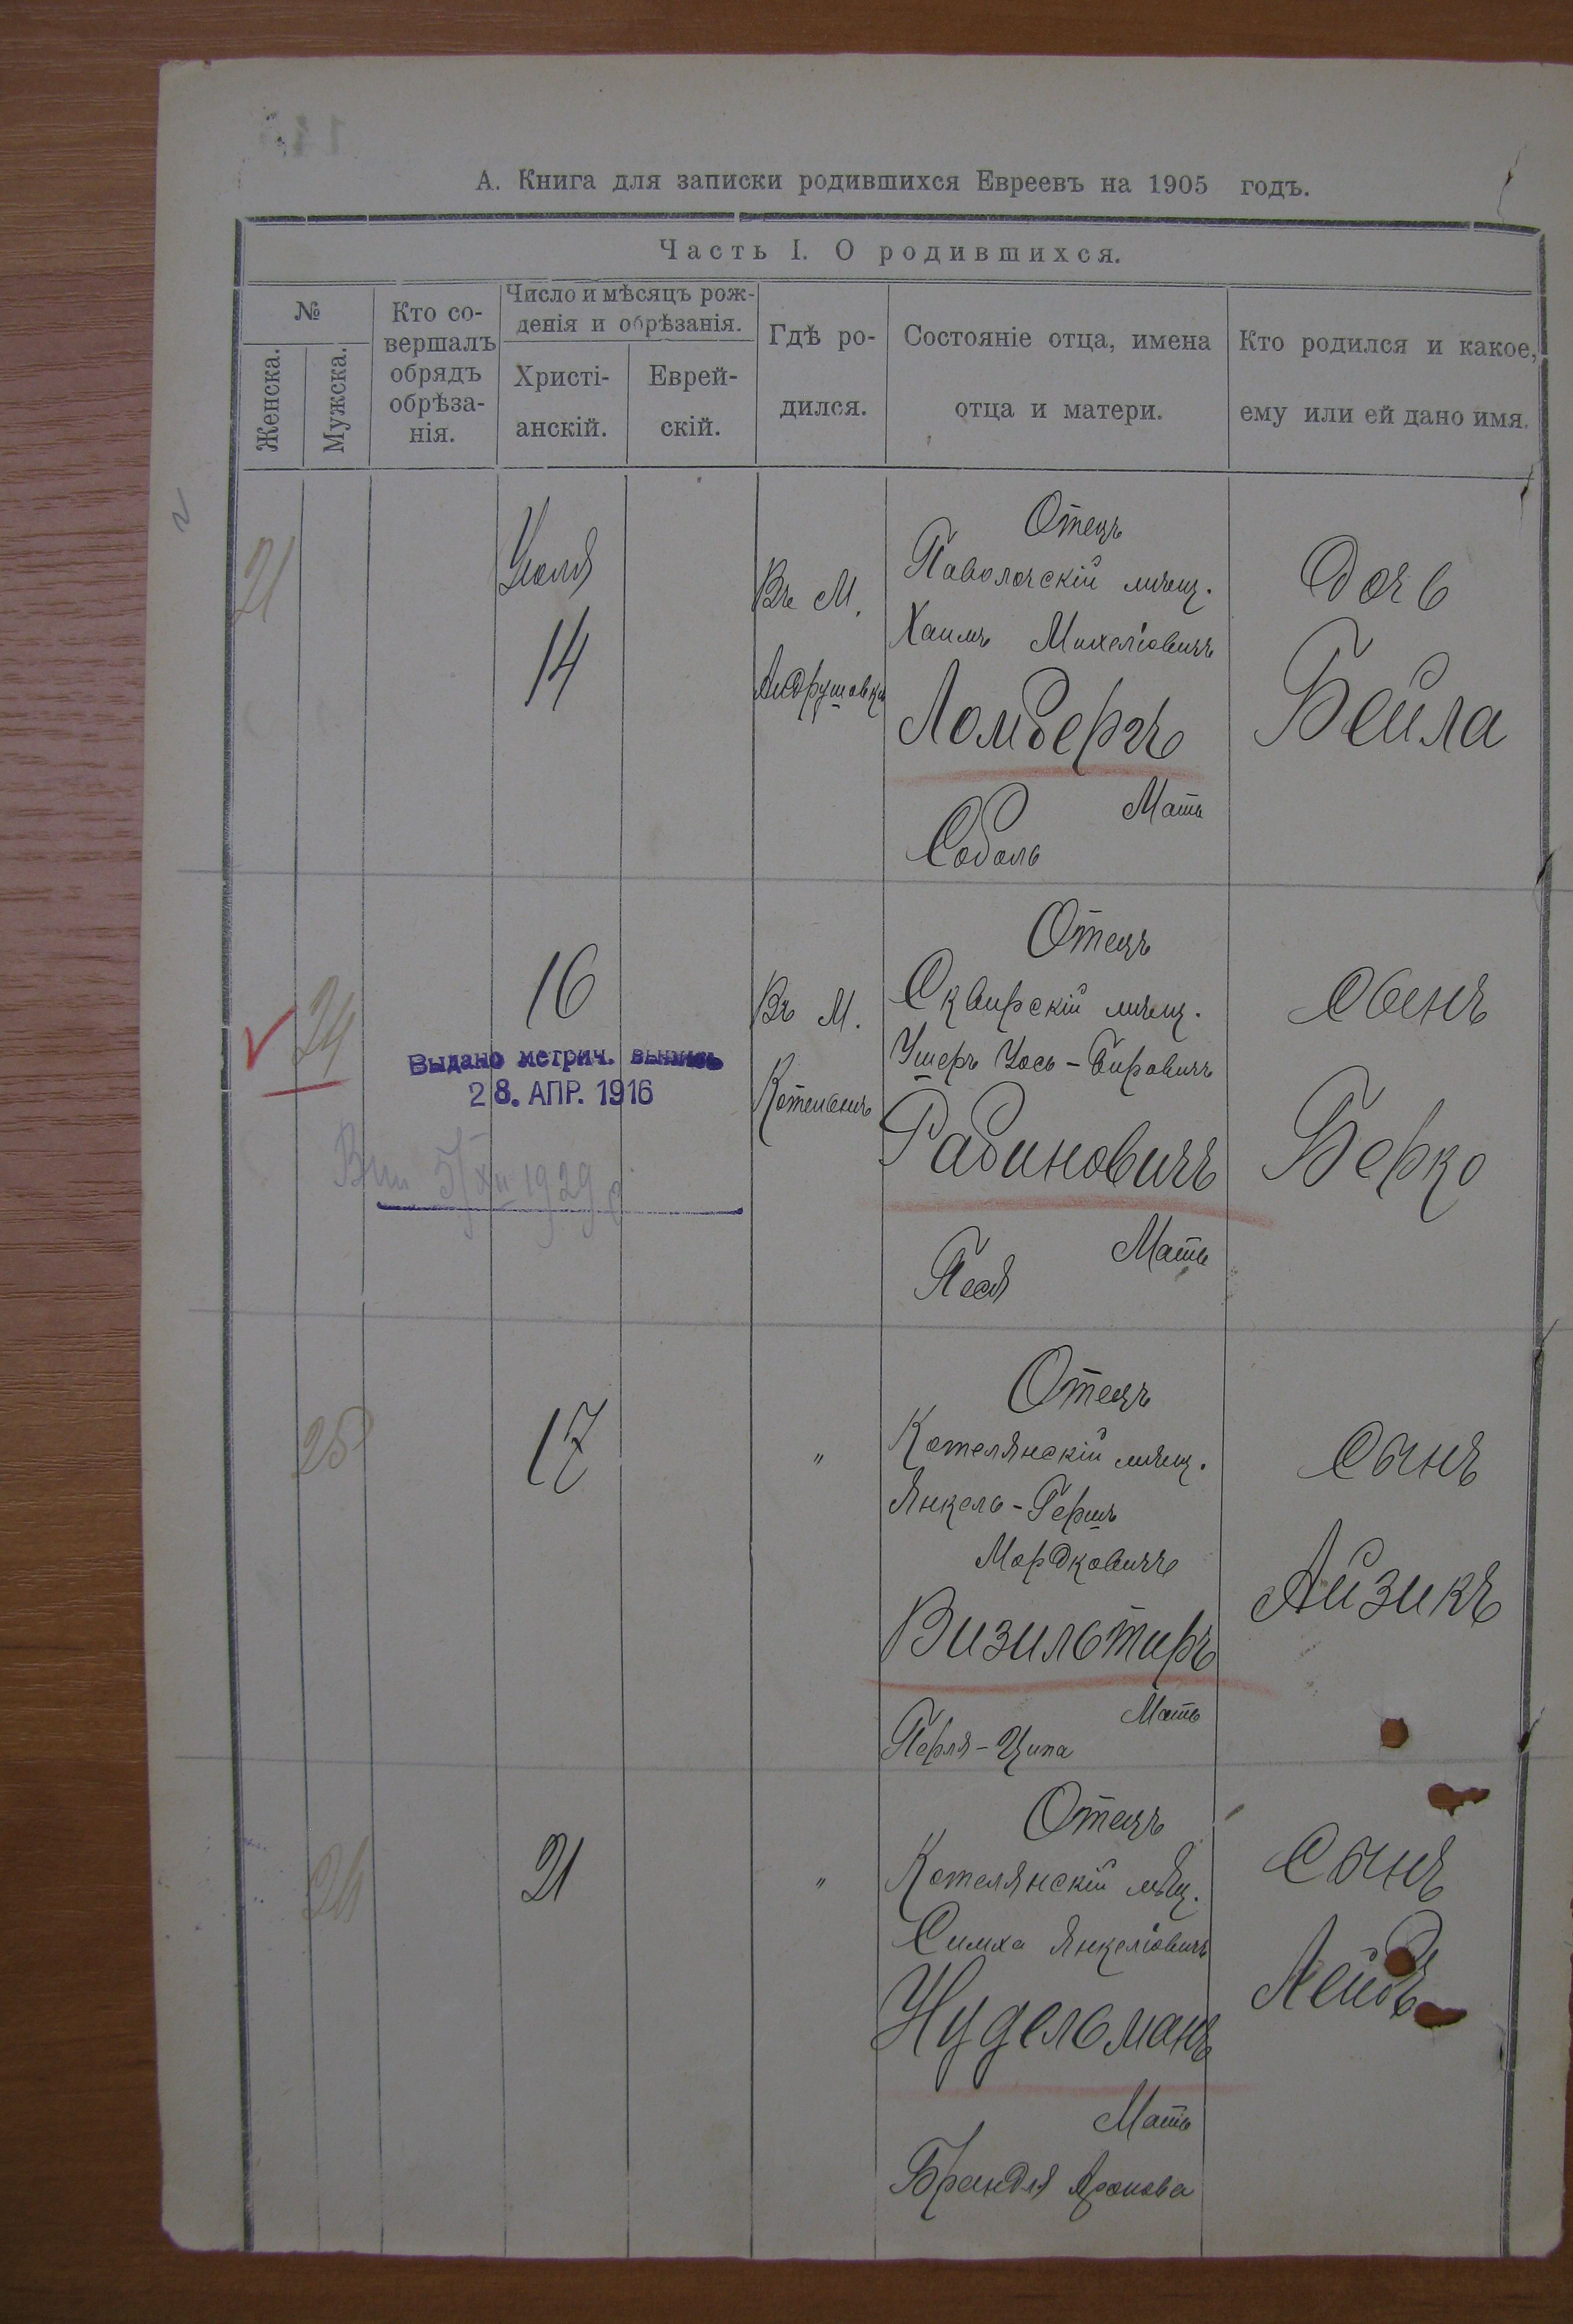 А. Книга для записки родившихся Евреевъ на 1905 годъ.
Часть I. О родившихся.
№
Женска.
Мужска.
Кто со-
вершалъ
обрядъ
обрѣза-
нія.
Число и мѣсяцъ рож-
денія и обрѣзанія.
Христі-
анскій.
Еврей-
скій.
Гдѣ ро-
дился.
Состояніе отца, имена
отца и матери.
Кто родился и какое,
ему или ей дано имя.
21
Іюля
14
Въ М.
Андрушовки
Отецъ
Паволочскій мѣщ.
Хаимъ Михеліовичъ
Ломбергъ
Мать
Соболь
Дочь
Бейла
24
16
Выдано метрич. выпись
28. АПР. 1916
5/XII 1929
Въ М.
Отецъ
Сквирскій мѣщ.
Ушеръ Іось-Бировичъ
Рабиновичъ
Мать
Песя
Сынъ
Берко
25
17
"
Отецъ
Котелянскій мѣщ.
Янкель-Гершъ
Мордковичъ
Визильтиръ
Мать
Перля-Ципа
Сынъ
Айзикъ
21
"
Отецъ
Котелянскій мѣщ.
Симха Янкеліовичъ
Нудельманъ
Мать
Брандля Аронова
Сынъ
Лейбъ